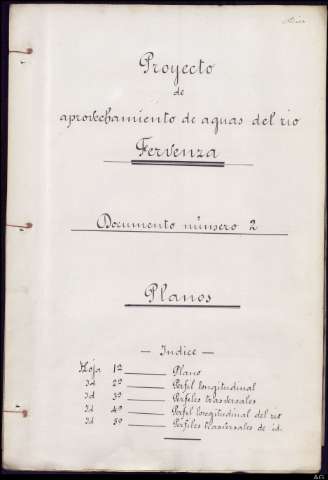 Proyecto
de
aprovechamiento de aguas del rio
Fervenza
Documento número 2
Planos
— Indice —
Hoja 1ª Plano
Id 2ª Perfil longitudinal
Id 3ª Perfiles trasversales
Id 4ª Perfil longitudinal del rio
Id 5ª Perfiles trasversales de id.